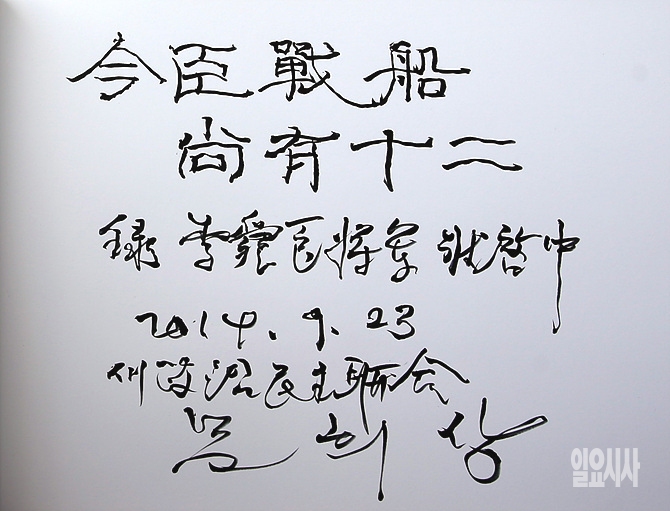 今臣戰船
尙有十二
錄 李舜臣將軍 狀啓中
2014. 9. 23
새政治民主聯合
문희상
일요시사